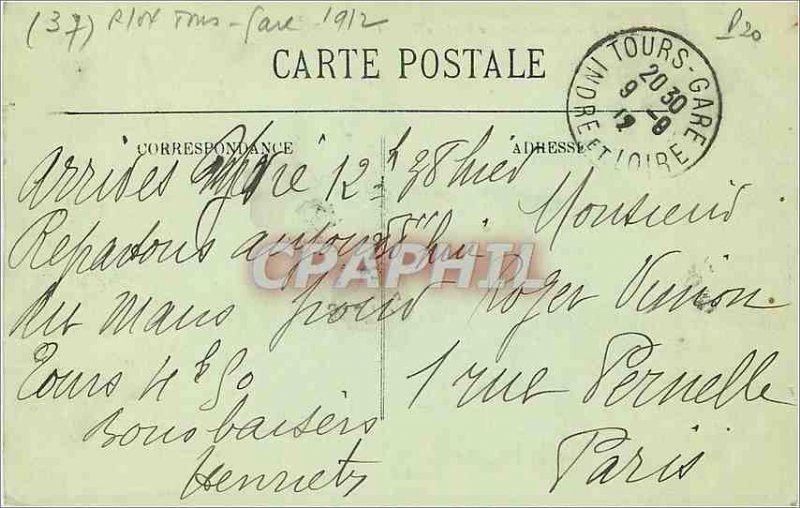 (37) Tours-Gare 1912
P20
CARTE POSTALE
TOURS-GARE
20 30
9 -8
12
INDRE ET LOIRE
CORRESPONDANCE
ADRESSE
Arrivés 12 h 38 hier
Repartons aujourd'hui
du Mans pour
Tours 4 h 50
Bons baisers
Monsieur
Roger
1 rue Pernelle
Paris
CPAPHIL